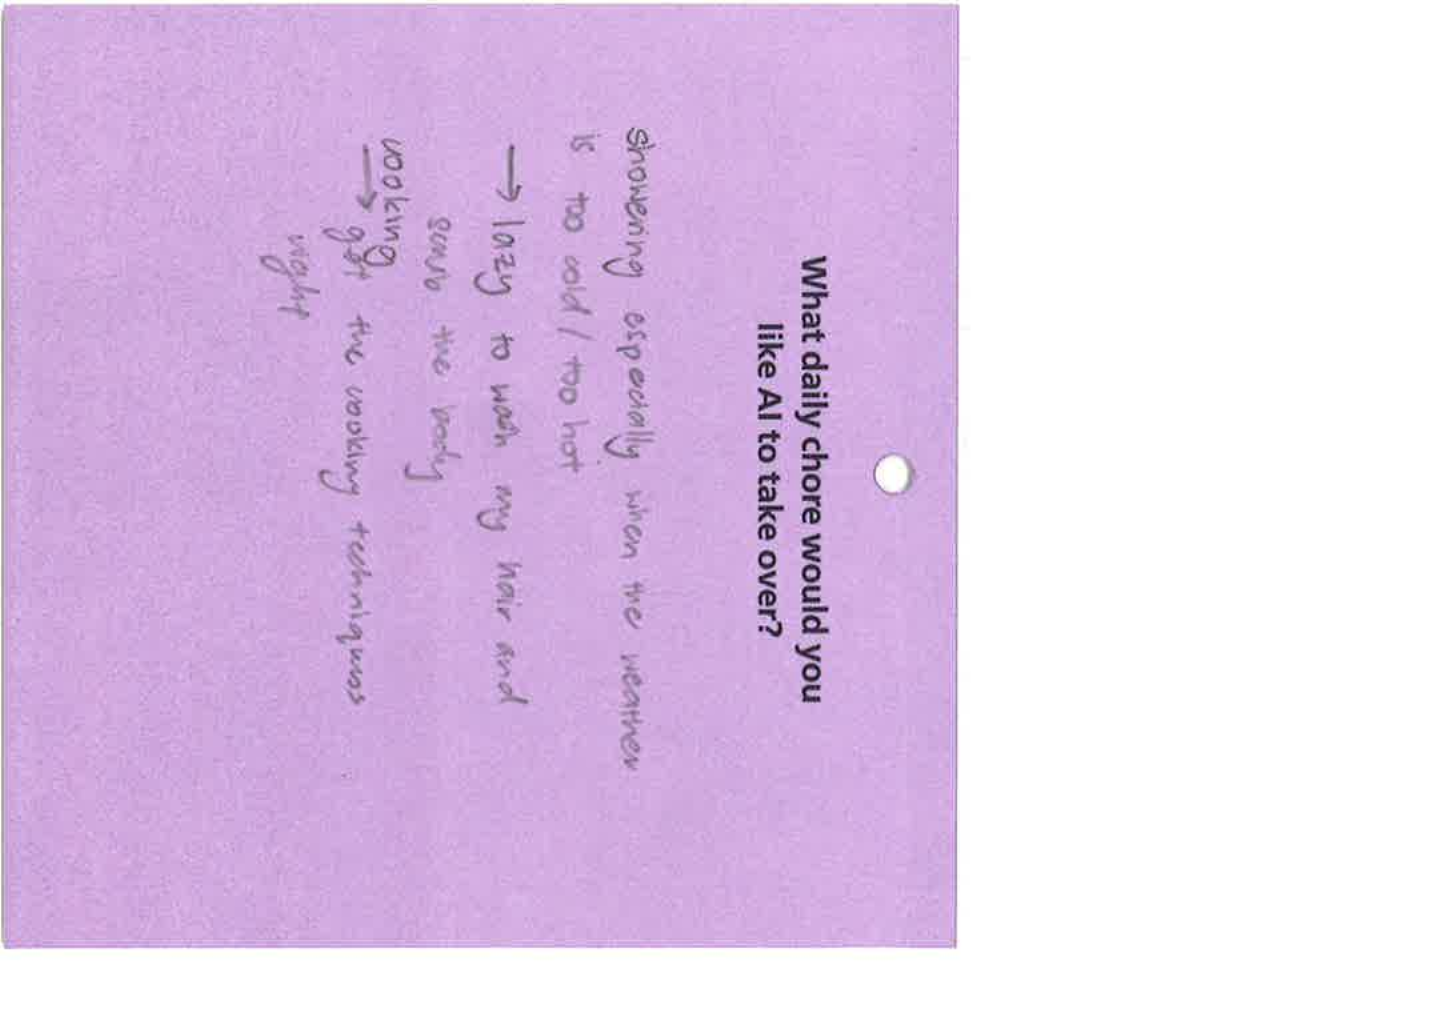 What daily chore would you
like AI to take over?
showering especially when the weather
is too cold / too hot
→ lazy to wash my hair and
scrub the body
cooking
→ get the cooking techniques
right